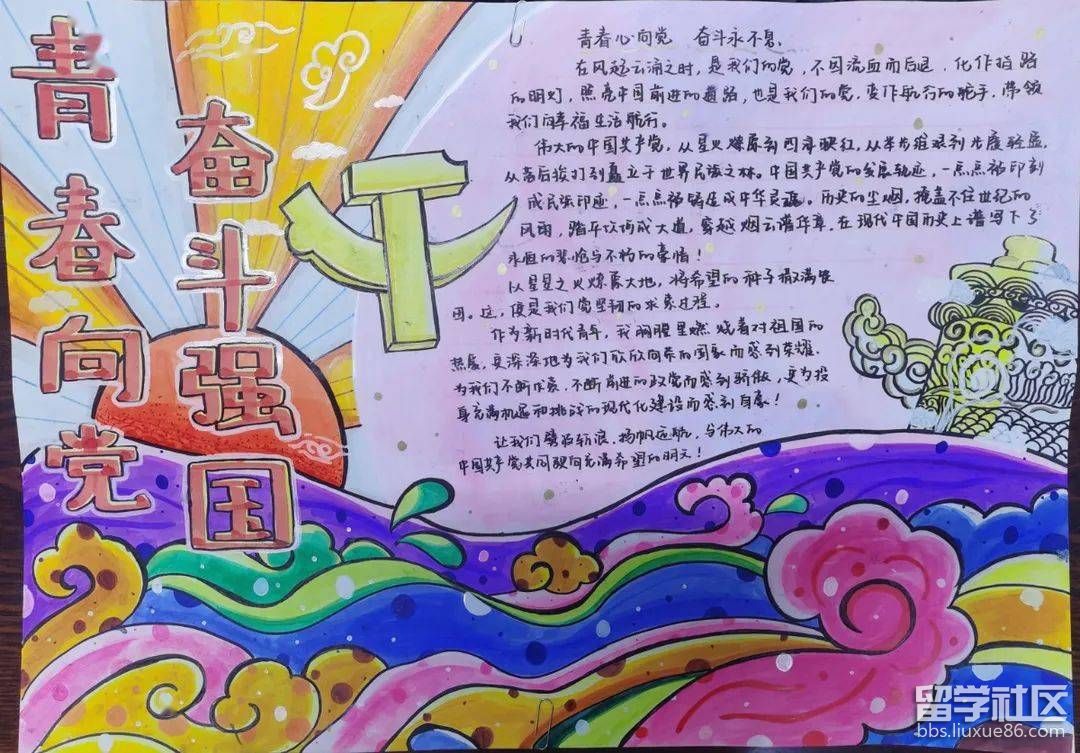 青春向党
奋斗强国
青春心向党 奋斗永不息、
在风起云涌之时，是我们的党，不因流血而后退，化作指路
的明灯，照亮中国前进的道路，也是我们的党，变作航行的舵手，带领
我们向幸福生活航行。
伟大的中国共产党，从星火燎原到四海映红，从举步维艰到步履轻盈，
从落后挨打到矗立于世界民族之林。中国共产党的发展轨迹，一点点被印刻
成民族印迹，一点点被铸造成中华灵魂。历史的尘烟，掩盖不住世纪的
风雨，踏平坎坷成大道，穿越烟云谱华章，在现代中国历史上谱写下了
永恒的悲怆与不朽的豪情！
以星星之火燎原大地，将希望的种子撒满
园。这，便是我们党坚韧的求索过程。
作为新时代青年，我胸膛里燃烧着对祖国的
热爱，更深深地为我们欣欣向荣的国家而感到荣耀、
为我们不断求索，不断前进的政党而感到骄傲，更为投
身充满机遇和挑战的现代化建设而感到自豪！
让我们劈波斩浪、扬帆远航，与伟大的
中国共产党共同驶向充满希望的明天！
留学社区
bbs.liuxue86.com